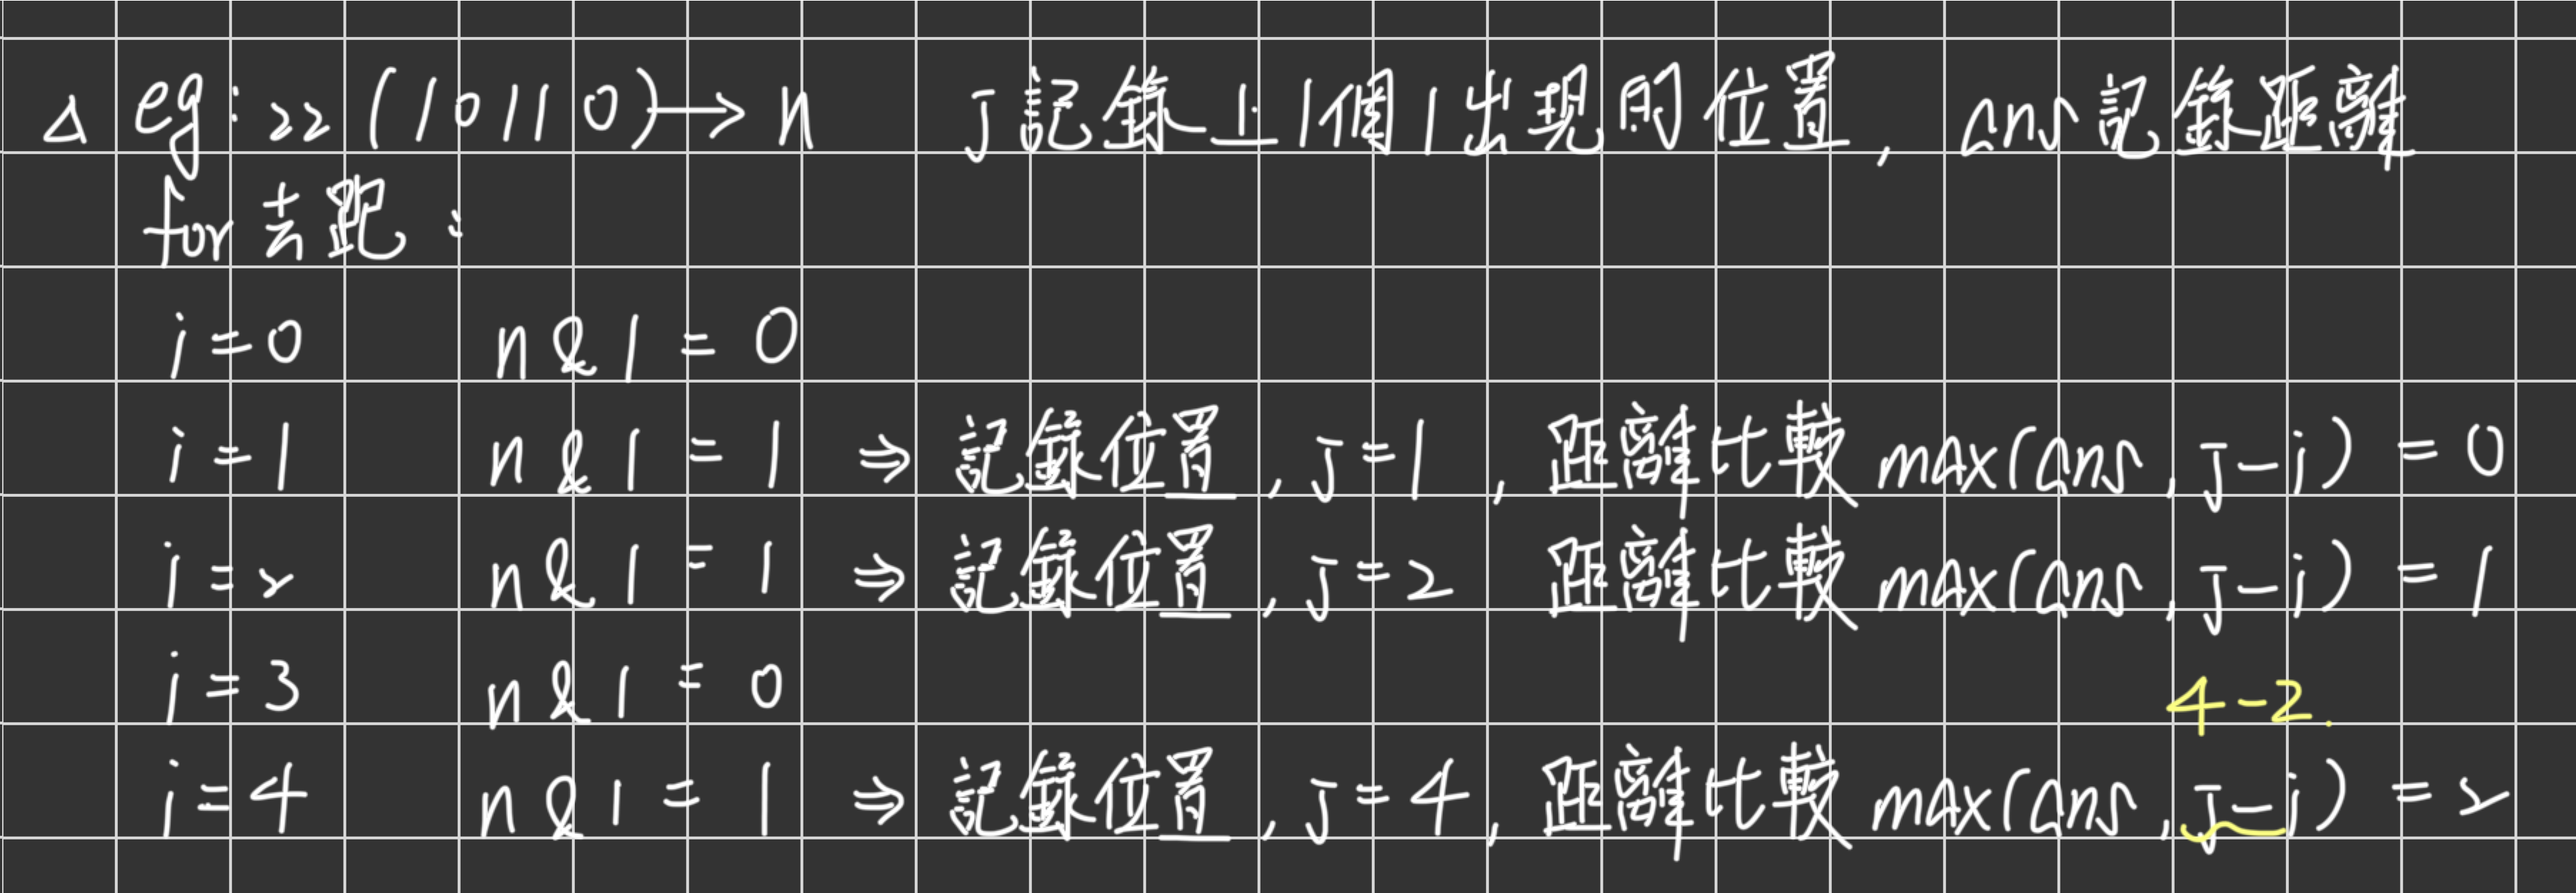 △ eg: 22 (10110) → n    j 記錄上1個1出現的位置, ans 記錄距離
for 去跑:
i=0    n & 1 = 0
i=1    n & 1 = 1 ⇒ 記錄位置, j=1, 距離比較 max(ans, j-i) = 0
i=2    n & 1 = 1 ⇒ 記錄位置, j=2 距離比較 max(ans, j-i) = 1
i=3    n & 1 = 0
4-2.
i=4    n & 1 = 1 ⇒ 記錄位置, j=4, 距離比較 max(ans, j-i) = 2